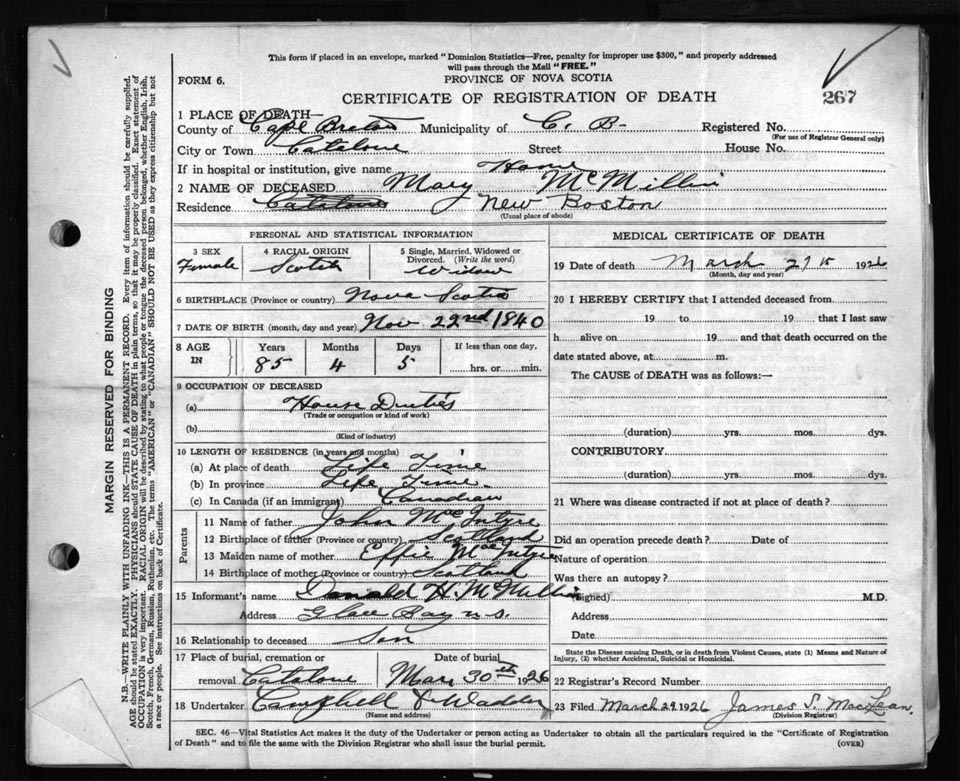 This form if placed in an envelope, marked "Dominion Statistics—Free, penalty for improper use $300," and properly addressed
will pass through the Mail "FREE."
FORM 6.
PROVINCE OF NOVA SCOTIA
CERTIFICATE OF REGISTRATION OF DEATH
267
1 PLACE OF DEATH—
County of Cape Breton Municipality of C. B- Registered No.
(For use of Registrar General only)
City or Town Catalone Street House No.
If in hospital or institution, give name Home
2 NAME OF DECEASED Mary McMillin
Residence Catalone New Boston
(Usual place of abode)
PERSONAL AND STATISTICAL INFORMATION
3 SEX
Female
4 RACIAL ORIGIN
Scotch
5 Single, Married, Widowed or
Divorced. (Write the word)
Widow
6 BIRTHPLACE (Province or country) Nova Scotia
7 DATE OF BIRTH (month, day and year) Nov 22nd 1840
8 AGE IN
Years Months Days If less than one day,
85 4 5 hrs. or min.
9 OCCUPATION OF DECEASED
(a) House Duties
(Trade or occupation or kind of work)
(b)
(Kind of industry)
10 LENGTH OF RESIDENCE (in years and months)
(a) At place of death Life Time
(b) In province Life Time
(c) In Canada (if an immigrant) Canadian
Parents
11 Name of father John McIntyre
12 Birthplace of father (Province or country) Scotland
13 Maiden name of mother Effie MacIntyre
14 Birthplace of mother (Province or country) Scotland
15 Informant's name Donald H. McMillin
Address Glace Bay N. S.
16 Relationship to deceased Son
17 Place of burial, cremation or Date of burial
removal Catalone Mar 30th 1926
18 Undertaker Campbell & Wadden
(Name and address)
MEDICAL CERTIFICATE OF DEATH
19 Date of death March 27th 1926
(Month, day and year)
20 I HEREBY CERTIFY that I attended deceased from
19 to 19 that I last saw
h alive on 19 and that death occurred on the
date stated above, at m.
The CAUSE of DEATH was as follows:—
(duration) yrs. mos. dys.
CONTRIBUTORY
(duration) yrs. mos. dys.
21 Where was disease contracted if not at place of death?
Did an operation precede death? Date of
Nature of operation
Was there an autopsy?
(Signed) M.D.
Address
Date
State the Disease causing Death, or in death from Violent Causes, state (1) Means and Nature of
Injury, (2) whether Accidental, Suicidal or Homicidal.
22 Registrar's Record Number
23 Filed March 29 1926 James S. MacLean.
(Division Registrar)
SEC. 46—Vital Statistics Act makes it the duty of the Undertaker or person acting as Undertaker to obtain all the particulars required in the "Certificate of Registration
of Death" and to file the same with the Division Registrar who shall issue the burial permit.
(OVER)
MARGIN RESERVED FOR BINDING
N.B.—WRITE PLAINLY WITH UNFADING INK—THIS IS A PERMANENT RECORD. Every item of information should be carefully supplied.
AGE should be stated EXACTLY. PHYSICIANS should STATE CAUSE OF DEATH in plain terms, so that it may be properly classified. Exact statement of
OCCUPATION is very important. RACIAL ORIGIN will be described by stating to what people or tongue the deceased person belonged, whether English, Irish,
Scotch, French, German, Russian, Ruthenian, etc. The terms "AMERICAN" or "CANADIAN" SHOULD NOT BE USED as they express citizenship but not
a race or people. See instructions on back of Certificate.